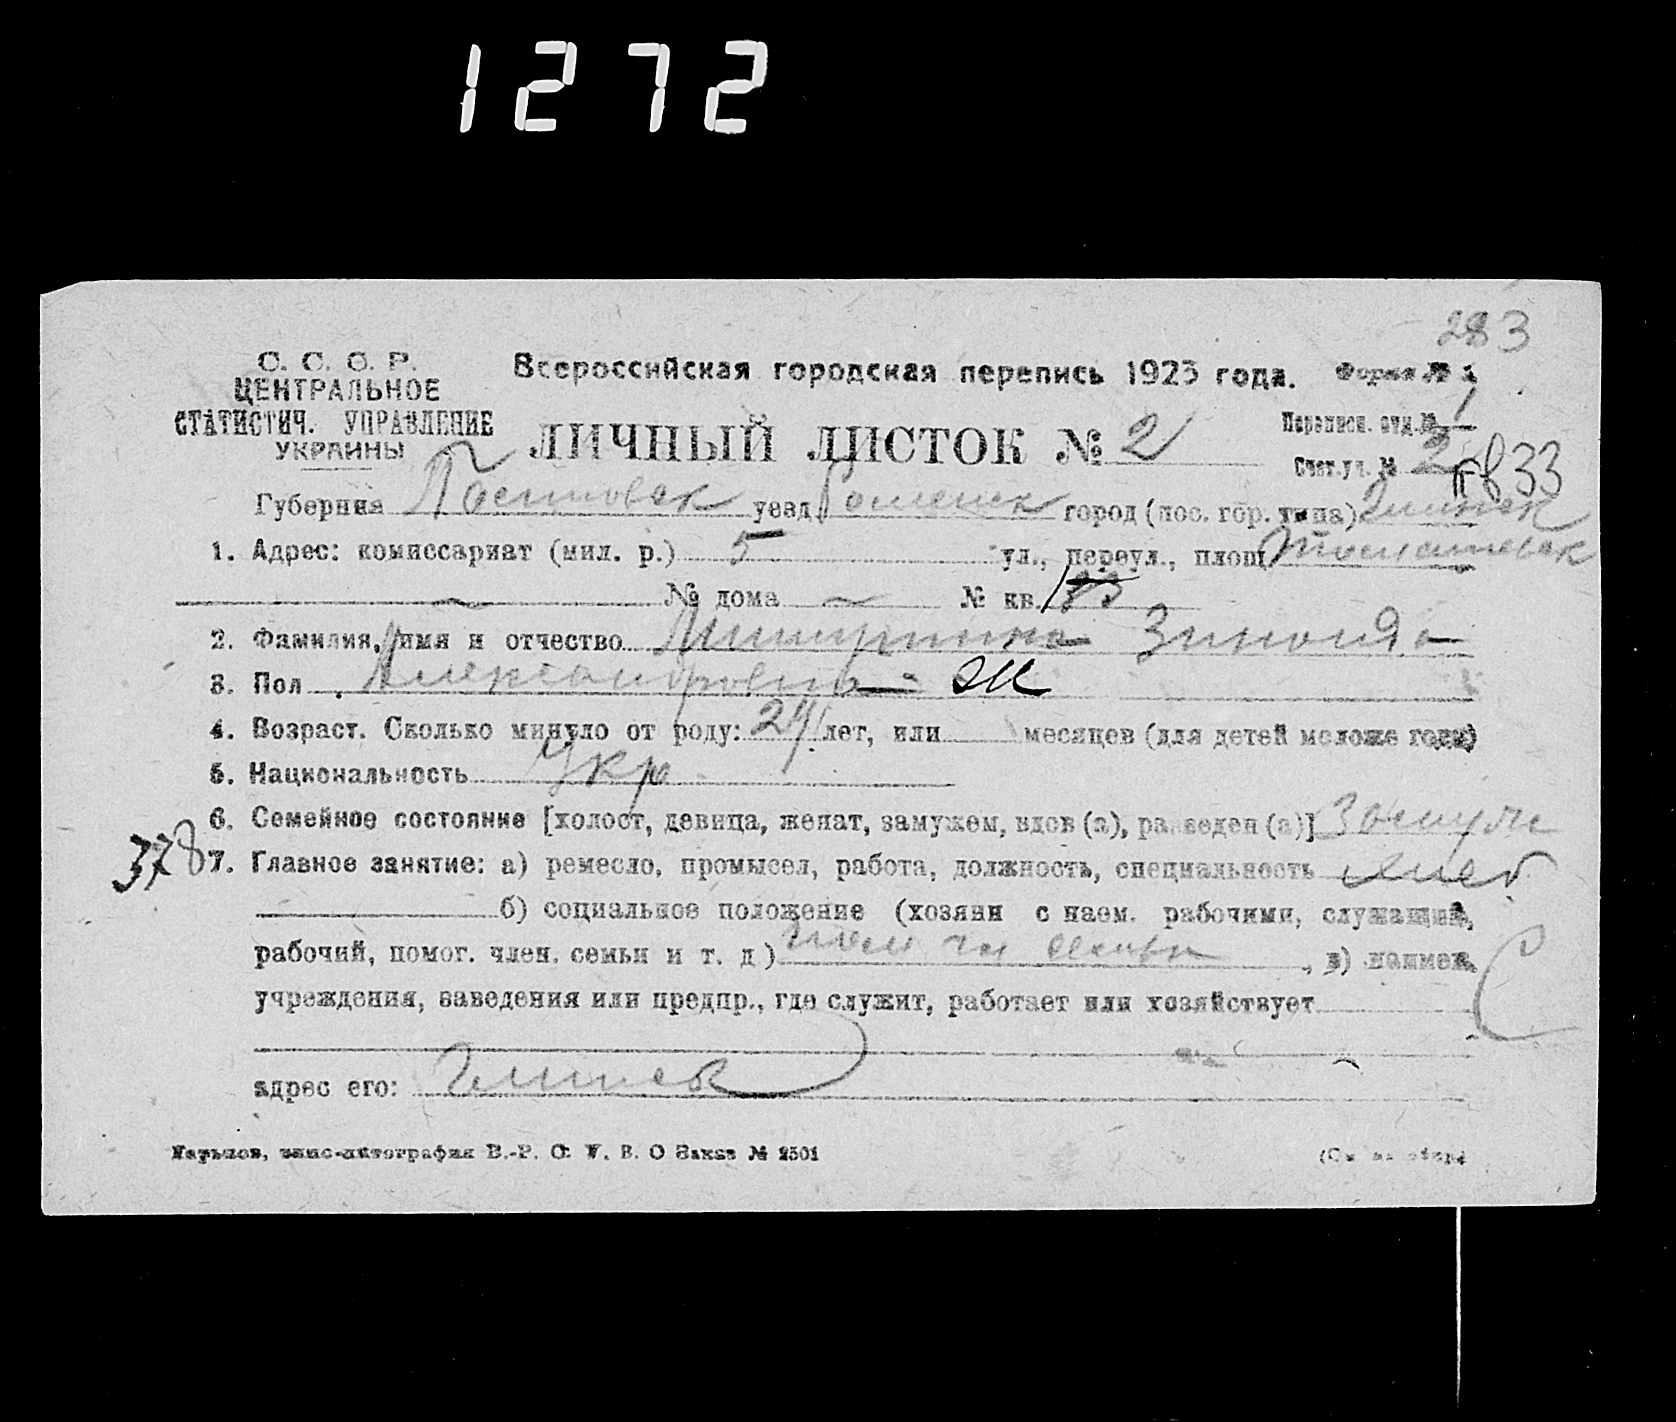 1272
283
С. С. С. Р.
ЦЕНТРАЛЬНОЕ
СТАТИСТИЧ. УПРАВЛЕНИЕ
УКРАИНЫ
Всероссийская городская перепись 1923 года.
Форма № 1
ЛИЧНЫЙ ЛИСТОК № 2
Переписн. отд. № 1
Счет. уч. № 2
33
Губерния Полтовск уезд Роменск город (пос. гор. типа) Глинск
1. Адрес: комиссариат (мил. р.) 5 ул., переул., площ.
№ дома № кв.
2. Фамилия, имя и отчество Зиноида
3. Пол Александровна - ж
4. Возраст. Сколько минуло от роду: 24 лет, или месяцев (для детей моложе года)
5. Национальность Укр
6. Семейное состояние [холост, девица, женат, замужем, вдов (а), разведен (а)] Замуж
378
7. Главное занятие: а) ремесло, промысел, работа, должность, специальность
б) социальное положение (хозяин с наем. рабочими, служащий,
рабочий, помог. член. семьи и т. д) пом чл семьи, в) наимен.
учреждения, заведения или предпр., где служит, работает или хозяйствует
адрес его: Глинск
Харьков, типо-литография В.-Р. О. У. В. О Заказ № 2501
(См. на обор.)